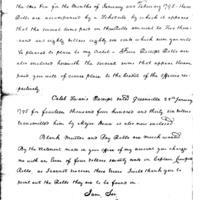 the this Pen for the Months of January and February 1795. these
Rolls are accompanied by a Schedule by which it appears
that the several sums paid on those Rolls amount to Five thous-
and and eighty nine dollars eighty six cents which sum you will
be pleased to place to my Credit. Four Receipt Rolls are
also enclosed wherein the several sums that appear therein
paid you will of course place to the credit of the Officers re-
spectively.
Caleb Swan's Receipt dated Greenville 28th January
1795 for fourteen thousand four hundred and thirty six dollars
transmitted him by Major is also now enclosed
Blank Muster and Pay Rolls are much wanted
By the Statement made in your office of my account you charge
me with an Error of four dollars seventy cents on Captain
Rolls as I cannot discover these Errors I wish thank you to
point out the Rolls they are to be found in.
I am Sir